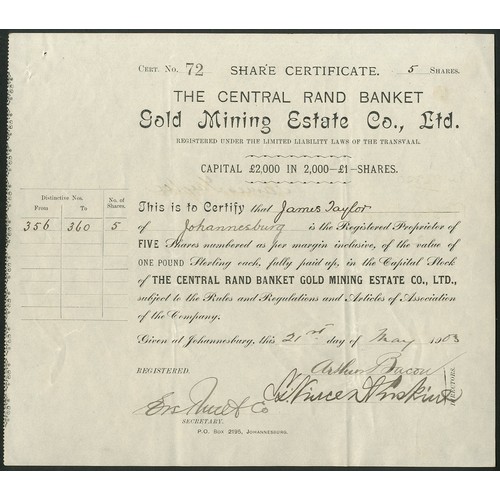 CERT. No. 72 SHARE CERTIFICATE. 5 SHARES.
THE CENTRAL RAND BANKET
Gold Mining Estate Co., Ltd.
REGISTERED UNDER THE LIMITED LIABILITY LAWS OF THE TRANSVAAL.
CAPITAL £2,000 IN 2,000—£1—SHARES.
Distinctive Nos. No. of Shares.
From To
356 360 5
This is to Certify that James Taylor
of Johannesburg is the Registered Proprietor of
FIVE Shares numbered as per margin inclusive, of the value of
ONE POUND Sterling each, fully paid up, in the Capital Stock
of THE CENTRAL RAND BANKET GOLD MINING ESTATE CO., LTD.,
subject to the Rules and Regulations and Articles of Association
of the Company.
Given at Johannesburg, this 21st day of May 1903
REGISTERED.
Arthur Bacon
DIRECTORS.
SECRETARY.
P.O. Box 2195, JOHANNESBURG.